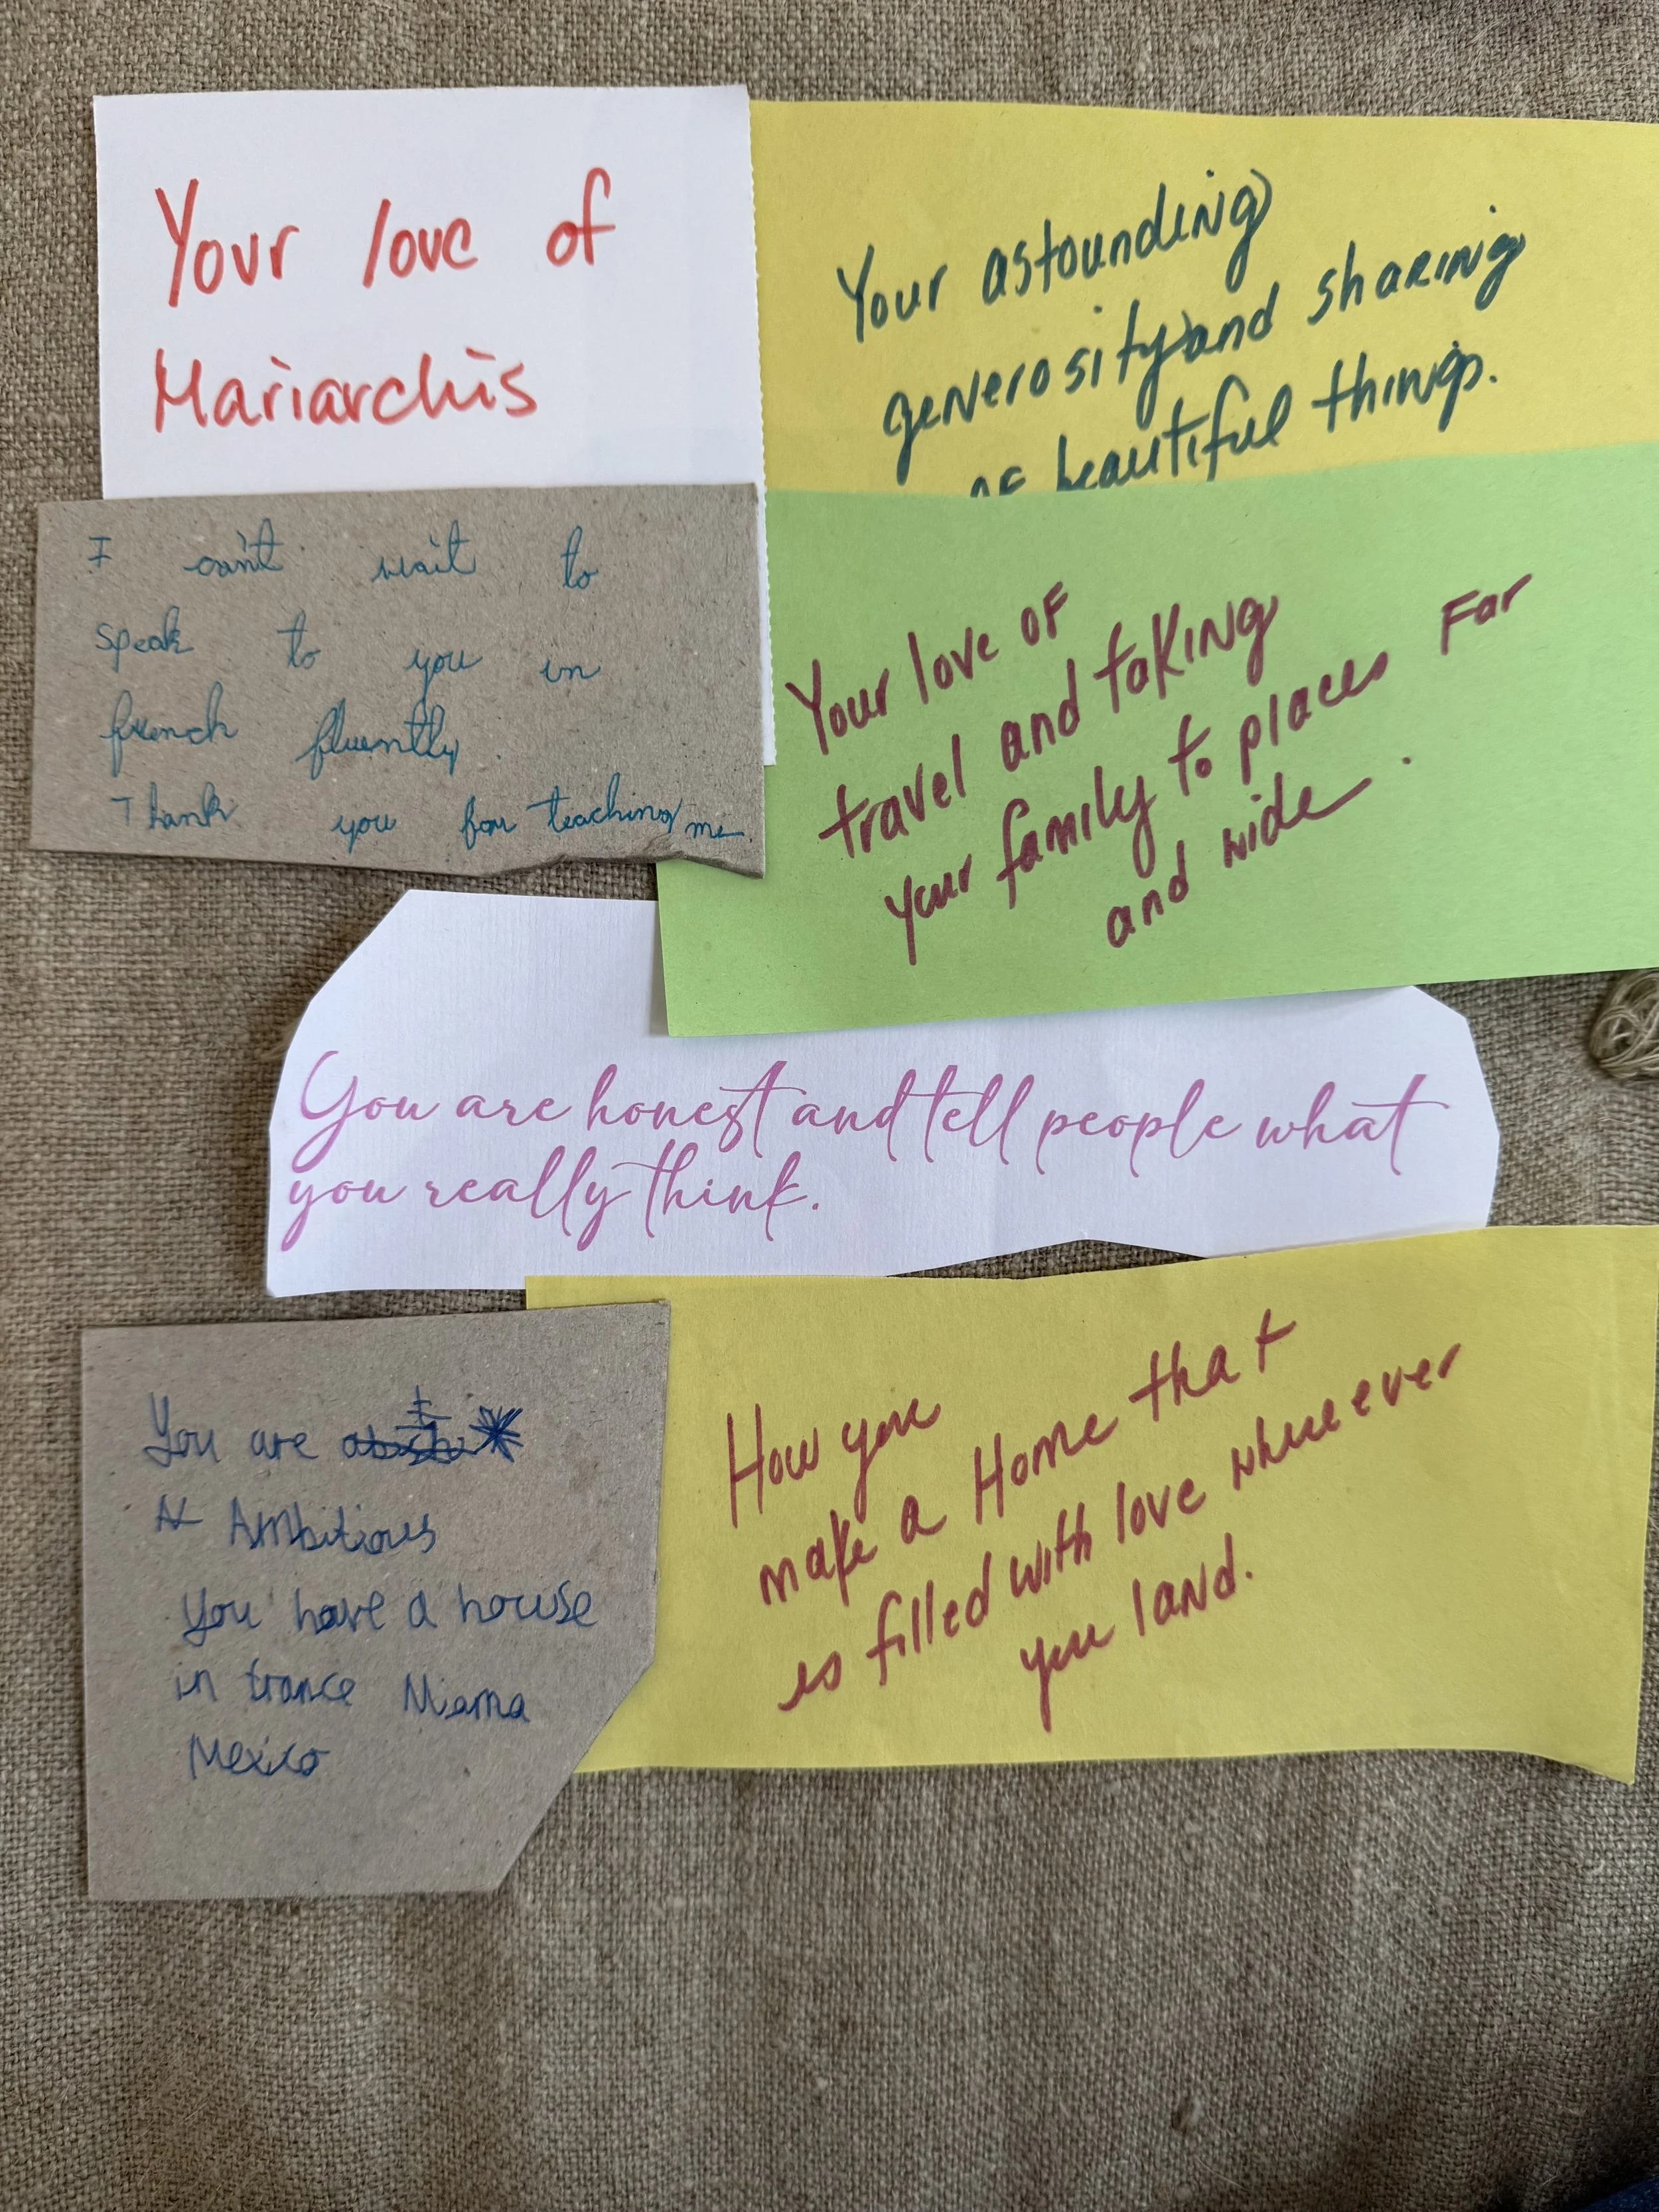 Your love of
Mariarchis
Your astounding
generosity and sharing
of beautiful things.
I can't wait to
speak to you in
french fluently.
Thank you for teaching me
Your love of
travel and taking
your family to places far
and wide.
You are honest and tell people what
you really think.
You are
Ambitious
you have a house
in france Miama
Mexico
How you
make a Home that
is filled with love whereever
you land.